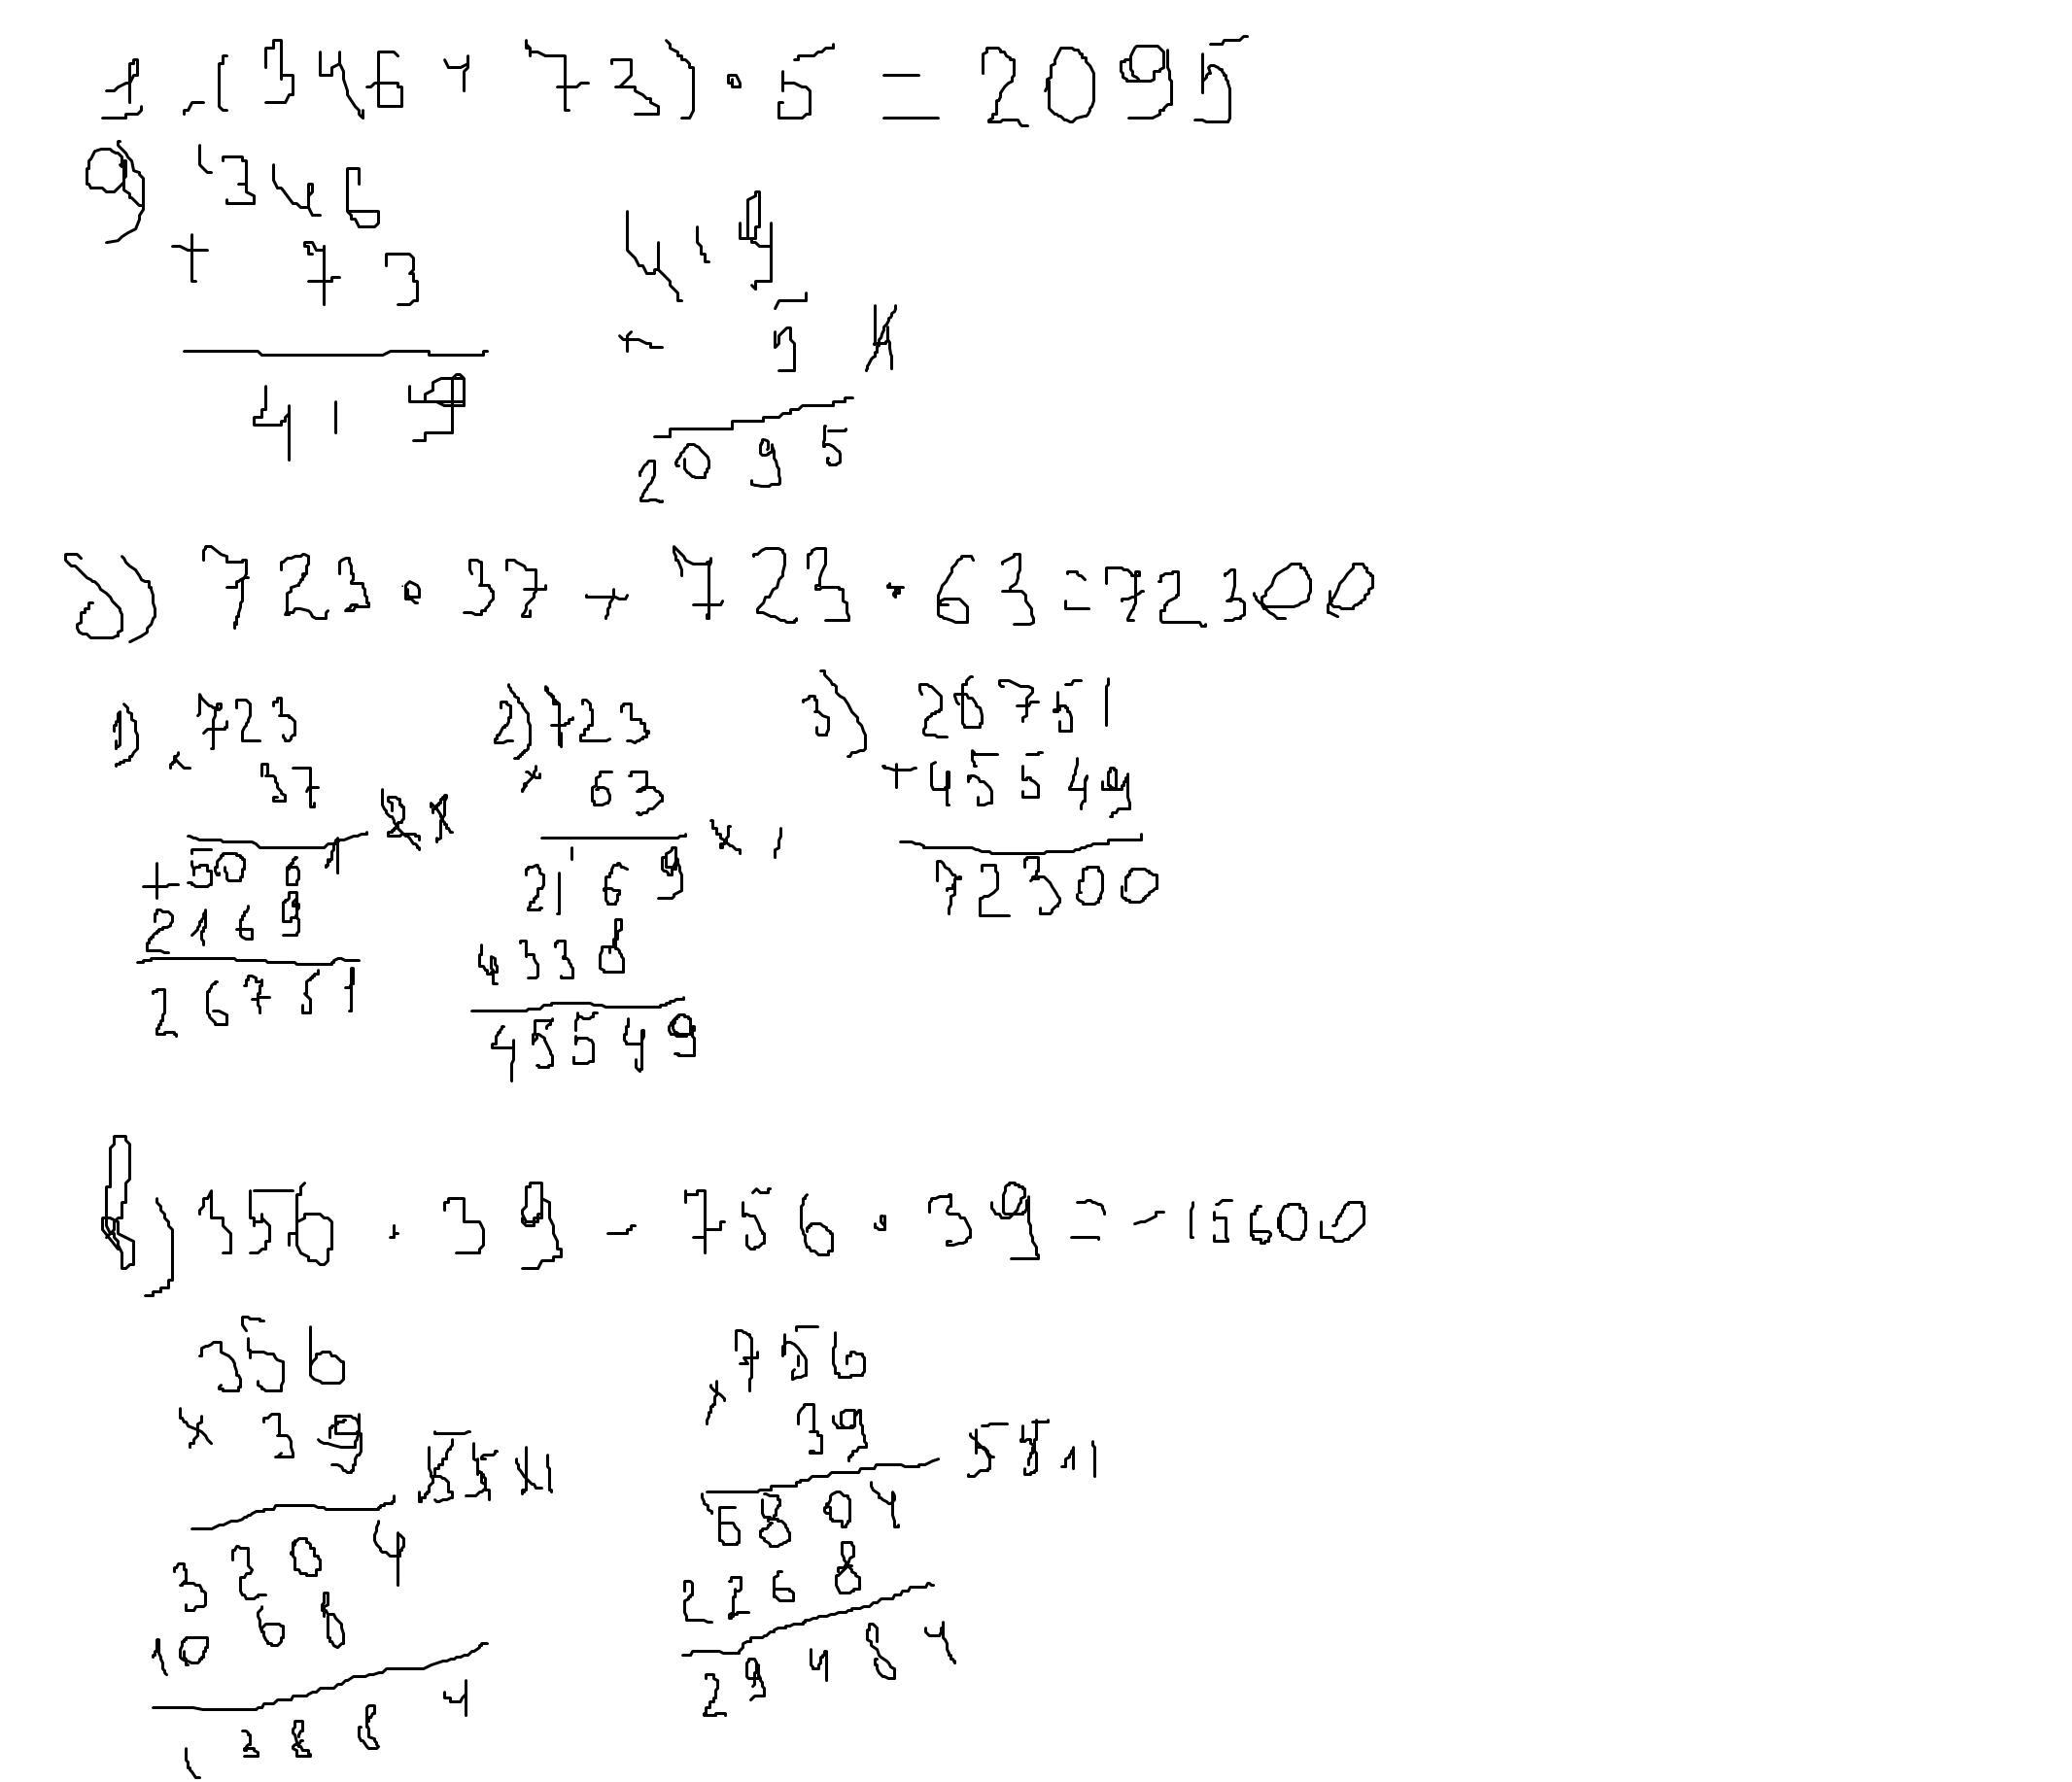 1. (346 + 73) · 5 = 2095
а) 346
+ 73
419
419
× 5 4
2095
б) 723 · 37 + 723 · 63 = 72300
1) 723
× 37
+ 5061
2169
26751
2) 723
× 63 × 1
2169
4338
45549
3) 26751
+ 45549
72300
в) 356 · 39 - 756 · 39 = -15600
356
× 39
3204
1068
13884
756
× 39
5511
6804
2268
29484